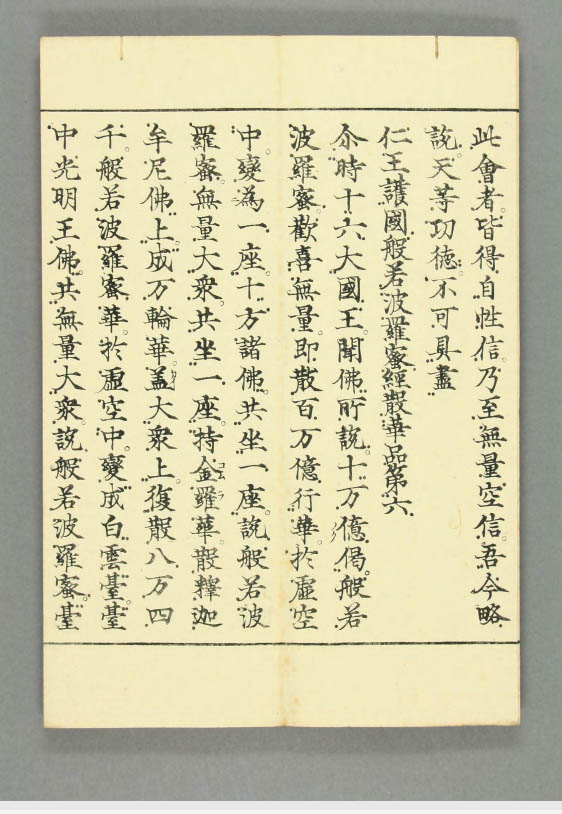 此會者皆得自性信乃至無量空信吾今略
説天等功德不可具盡
仁王護國般若波羅蜜經散華品第六
尒時十六大國王聞佛所説十万億偈般若
波羅蜜歡喜無量即散百万億行華於虛空
中變為一座十方諸佛共坐一座説般若波
羅蜜無量大衆共坐一座持金羅華散釋迦
牟尼佛上成万輪華盖大衆上復散八万四
千般若波羅蜜華於虛空中變成白雲臺臺
中光明王佛共無量大衆説般若波羅蜜臺